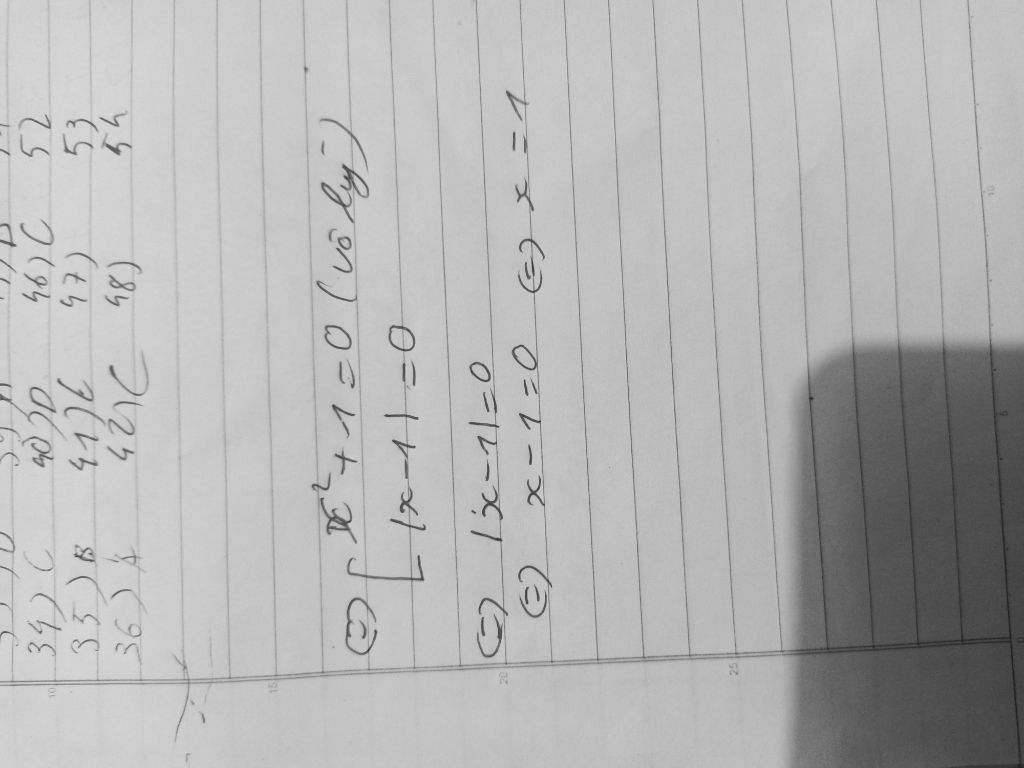 34) C 40) D 46) C 52
35) B 41) C 47) 53
36) A 42) C 48) 54
⇔ [ x² + 1 = 0 (vô lý)
|x - 1| = 0
⇔ |x - 1| = 0
⇔ x - 1 = 0 ⇔ x = 1
10
15
20
25